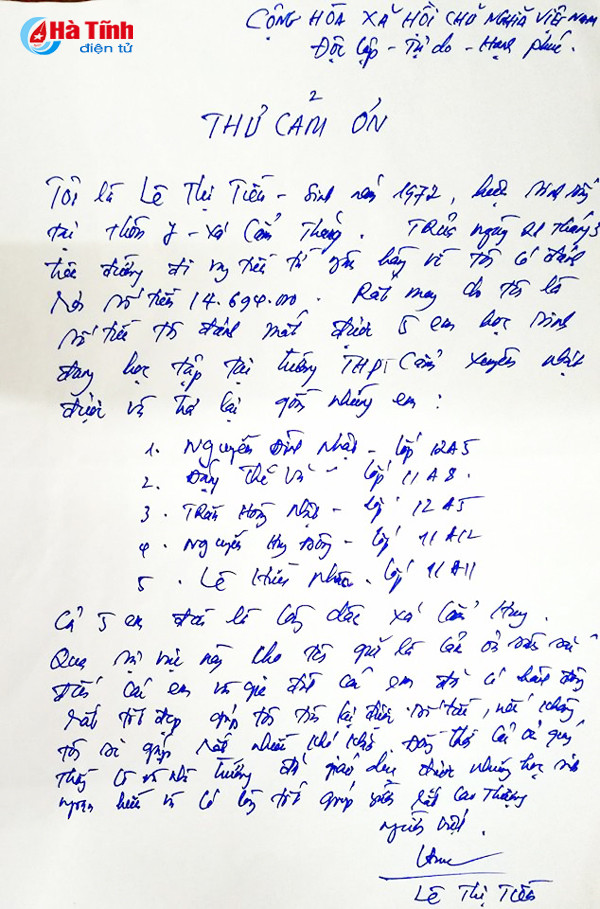 Hà Tĩnh
điện tử
CỘNG HÒA XÃ HỘI CHỦ NGHĨA VIỆT NAM
Độc lập - Tự do - Hạnh phúc.
THƯ CẢM ƠN
Tôi là Lê Thị Tiến - sinh năm 1972, hiện sinh sống
tại thôn 7 - xã Cẩm Thăng. Trưa ngày 21 tháng 3
trên đường đi tiền từ ngân hàng về tôi có đánh
rơi số tiền 14.694.000. Rất may do tôi là
số tiền tôi đánh mất được 5 em học sinh
đang học tập tại trường THPT Cẩm Xuyên nhặt
được và trả lại gồm những em:
1. Nguyễn Đình Nhật - lớp 12A5
2. Đặng Thế Vũ - lớp 11A8.
3. Trần Hoàng Nhật - lớp 12A5
4. Nguyễn Huy Đông - lớp 11A12
5. Lê Hiếu Nhân - lớp 11A11
Cả 5 em đều là xã Cẩm Huy.
Qua sự việc này cho tôi gửi lời cảm ơn sâu sắc
đến các em và gia đình các em đã có hành động
rất tốt đẹp giúp tôi tìm lại được số tiền, nếu không
tôi sẽ gặp rất nhiều khó khăn. Đồng thời cảm ơn quý
thầy cô và nhà trường đã giáo dục được những học sinh
ngoan hiền và có lòng tốt giúp rất cao thượng
Người viết.
Lê Thị Tiến